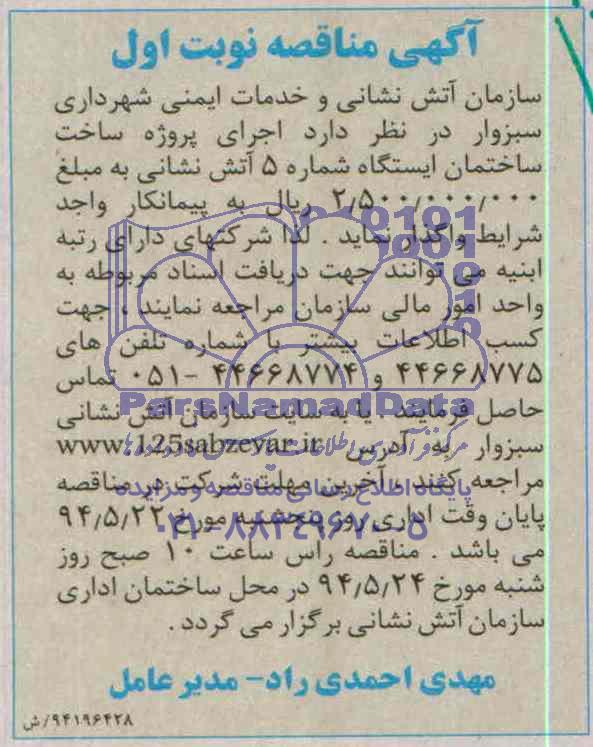 آگهی مناقصه نوبت اول
سازمان آتش نشانی و خدمات ایمنی شهرداری
سبزوار در نظر دارد اجرای پروژه ساخت
ساختمان ایستگاه شماره ۵ آتش نشانی به مبلغ
۲/۵۰۰/۰۰۰/۰۰۰ ریال به پیمانکار واجد
شرایط واگذار نماید . لذا شرکتهای دارای رتبه
ابنیه می توانند جهت دریافت اسناد مربوطه به
واحد امور مالی سازمان مراجعه نمایند ، جهت
کسب اطلاعات بیشتر با شماره تلفن های
۴۴۶۶۸۷۷۵ و ۴۴۶۶۸۷۷۴ -۰۵۱ تماس
حاصل فرمایند . یا به سایت سازمان آتش نشانی
سبزوار به آدرس www.125sabzevar.ir
مراجعه کنند ، آخرین مهلت شرکت در مناقصه
پایان وقت اداری روز پنجشنبه مورخ ۹۴/۵/۲۲
می باشد . مناقصه راس ساعت ۱۰ صبح روز
شنبه مورخ ۹۴/۵/۲۴ در محل ساختمان اداری
سازمان آتش نشانی برگزار می گردد .
مهدی احمدی راد- مدیر عامل
۹۴۱۹۶۴۲۸/ش
ParsNamadData
پایگاه اطلاع رسانی مناقصه و مزایده
۰۲۱-۸۸۳۴۹۶۷۰-۵